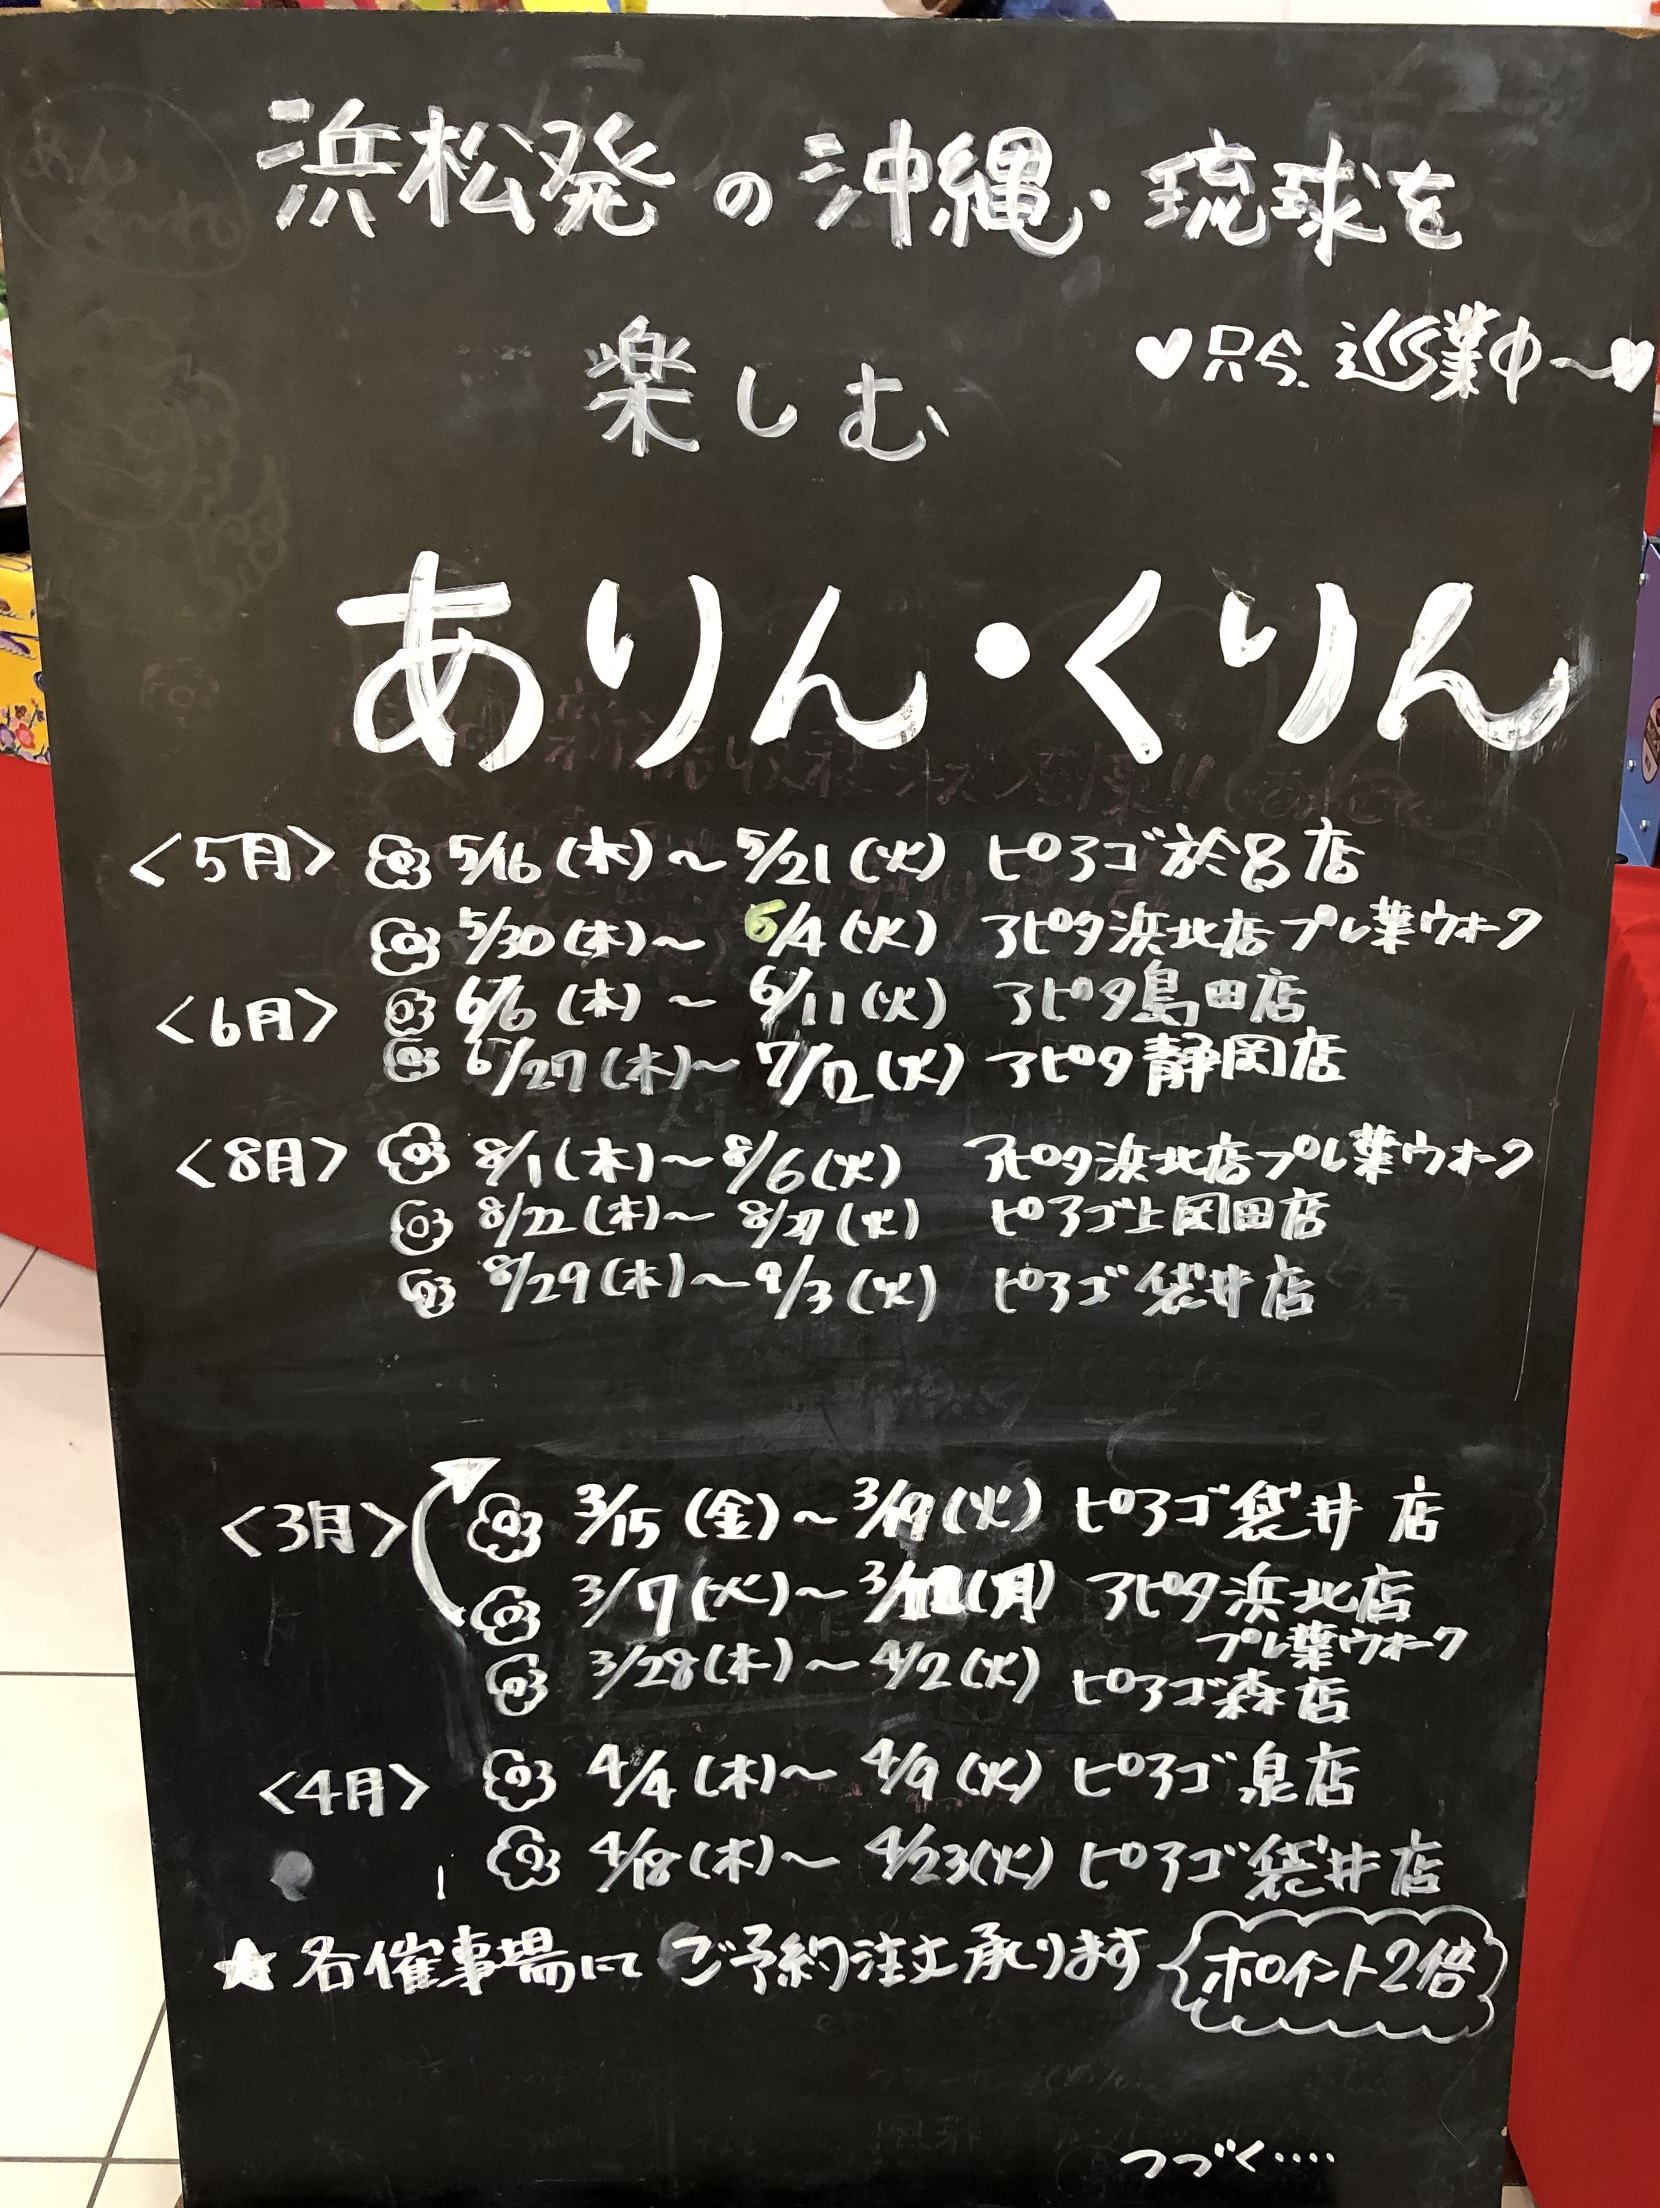 浜松発の沖縄・琉球を
楽しむ
♥只今、巡業中〜♥
ありん・くりん
〈5月〉 5/16(木)〜5/21(火) ピアゴ於呂店
5/30(木)〜6/4(火) アピタ浜北店プレ葉ウォーク
〈6月〉 6/6(木)〜6/11(火) アピタ島田店
6/27(木)〜7/2(火) アピタ静岡店
〈8月〉 8/1(木)〜8/6(火) アピタ浜北店プレ葉ウォーク
8/22(木)〜8/27(火) ピアゴ上岡田店
8/29(木)〜9/3(火) ピアゴ袋井店
〈3月〉 3/15(金)〜3/19(火) ピアゴ袋井店
3/7(火)〜 (月) アピタ浜北店
プレ葉ウォーク
3/28(木)〜4/2(火) ピアゴ森店
〈4月〉 4/4(木)〜4/9(火) ピアゴ泉店
4/18(木)〜4/23(火) ピアゴ袋井店
★各催事場にてご予約注文承ります ポイント2倍
つづく‥‥